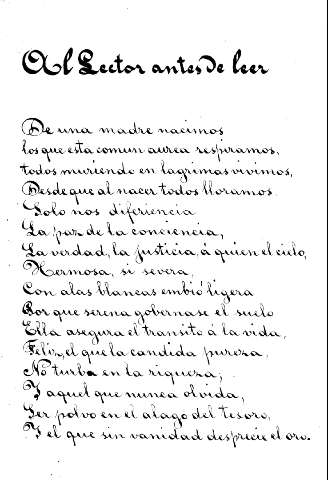 Al Lector antes de leer
De una madre nacimos
los que esta comun aurea respiramos,
todos muriendo en lagrimas vivimos,
Desde que al nacer todos lloramos.
Solo nos diferiencia
La paz de la conciencia,
La verdad, la justicia, á quien el cielo,
Hermosa, si severa,
Con alas blancas embió ligera
Por que serena gobernase el suelo
Ella asegura el transito á la vida,
Feliz, el que la candida pureza,
No turba en la riqueza,
Y aquel que nunca olvida,
Ser polvo en el alago del tesoro,
Y el que sin vanidad desprecie el oro.